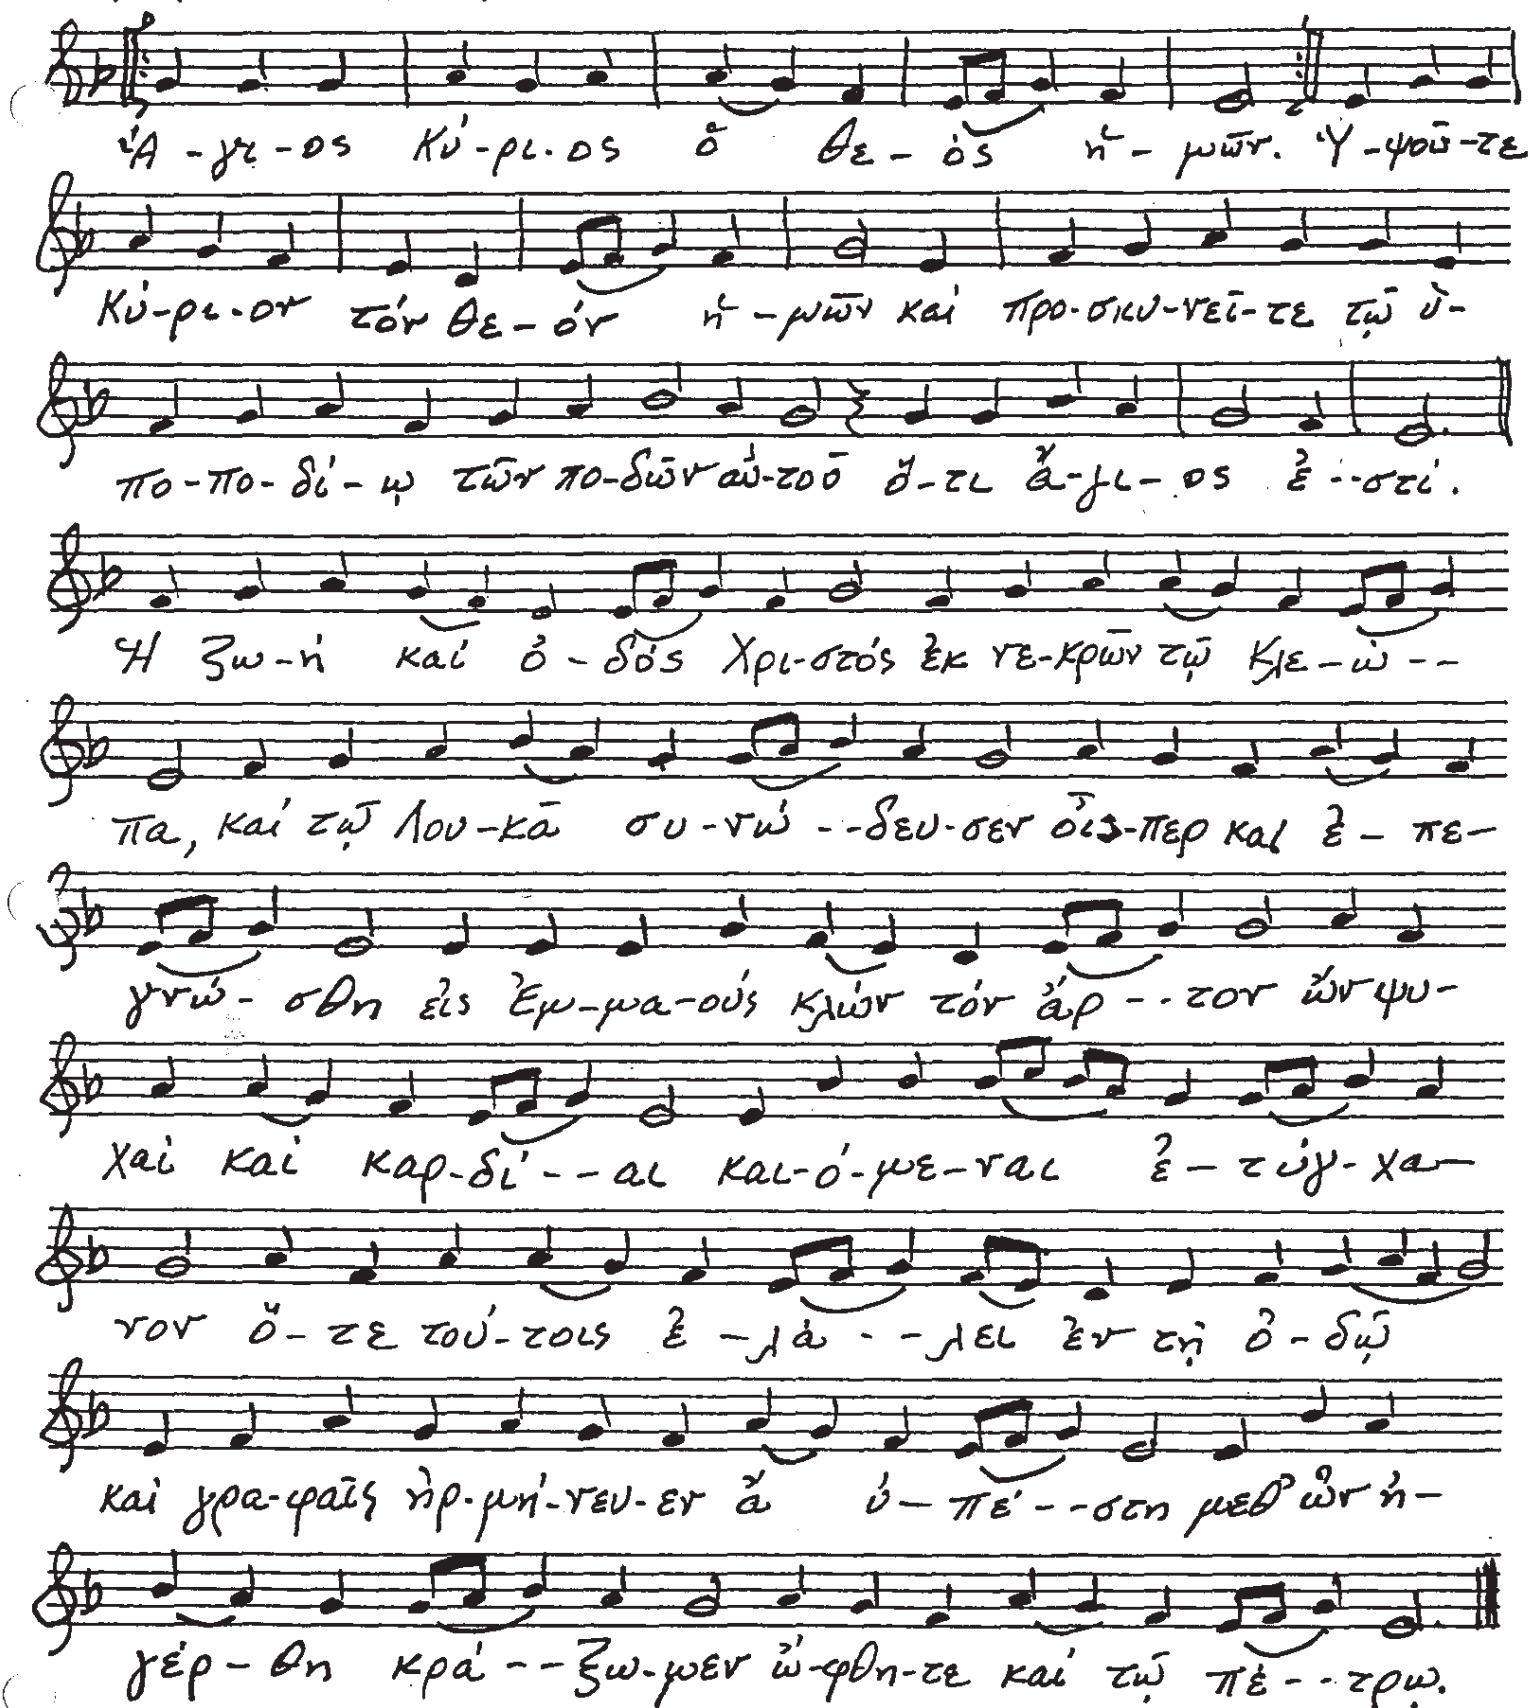 Ἅ-γι-ος Κύ-ρι-ος ὁ θε-ός ἡ-μῶν. Ὑ-ψοῦ-τε
Κύ-ρι-ον τόν θε-όν ἡ-μῶν καί προ-σκυ-νεῖ-τε τῷ ὑ-
πο-πο-δί-ῳ τῶν πο-δῶν αὐ-τοῦ ὅ-τι ἅ-γι-ος ἐ--στί.
Ἡ ζω-ή καί ὁ-δός Χρι-στός ἐκ νε-κρῶν τῷ Κλε-ώ--
πα, καί τῷ Λου-κᾶ συ-νώ--δευ-σεν οἷς-περ καί ἐ-πε-
γνώ-σθη εἰς Ἐμ-μα-ούς κλῶν τόν ἄρ--τον ὧν ψυ-
χαί καί καρ-δί--αι και-ό-με-ναι ἐ-τύγ-χα-
νον ὅ-τε τού-τοις ἐ-λά--λει ἐν τῇ ὁ-δῷ
καί γρα-φαῖς ἡρ-μή-νευ-εν ἅ ὑ-πέ--στη μεθ' ὧν ἠ-
γέρ-θη κρά--ξω-μεν ὤ-φθη-τε καί τῷ πέ--τρῳ.